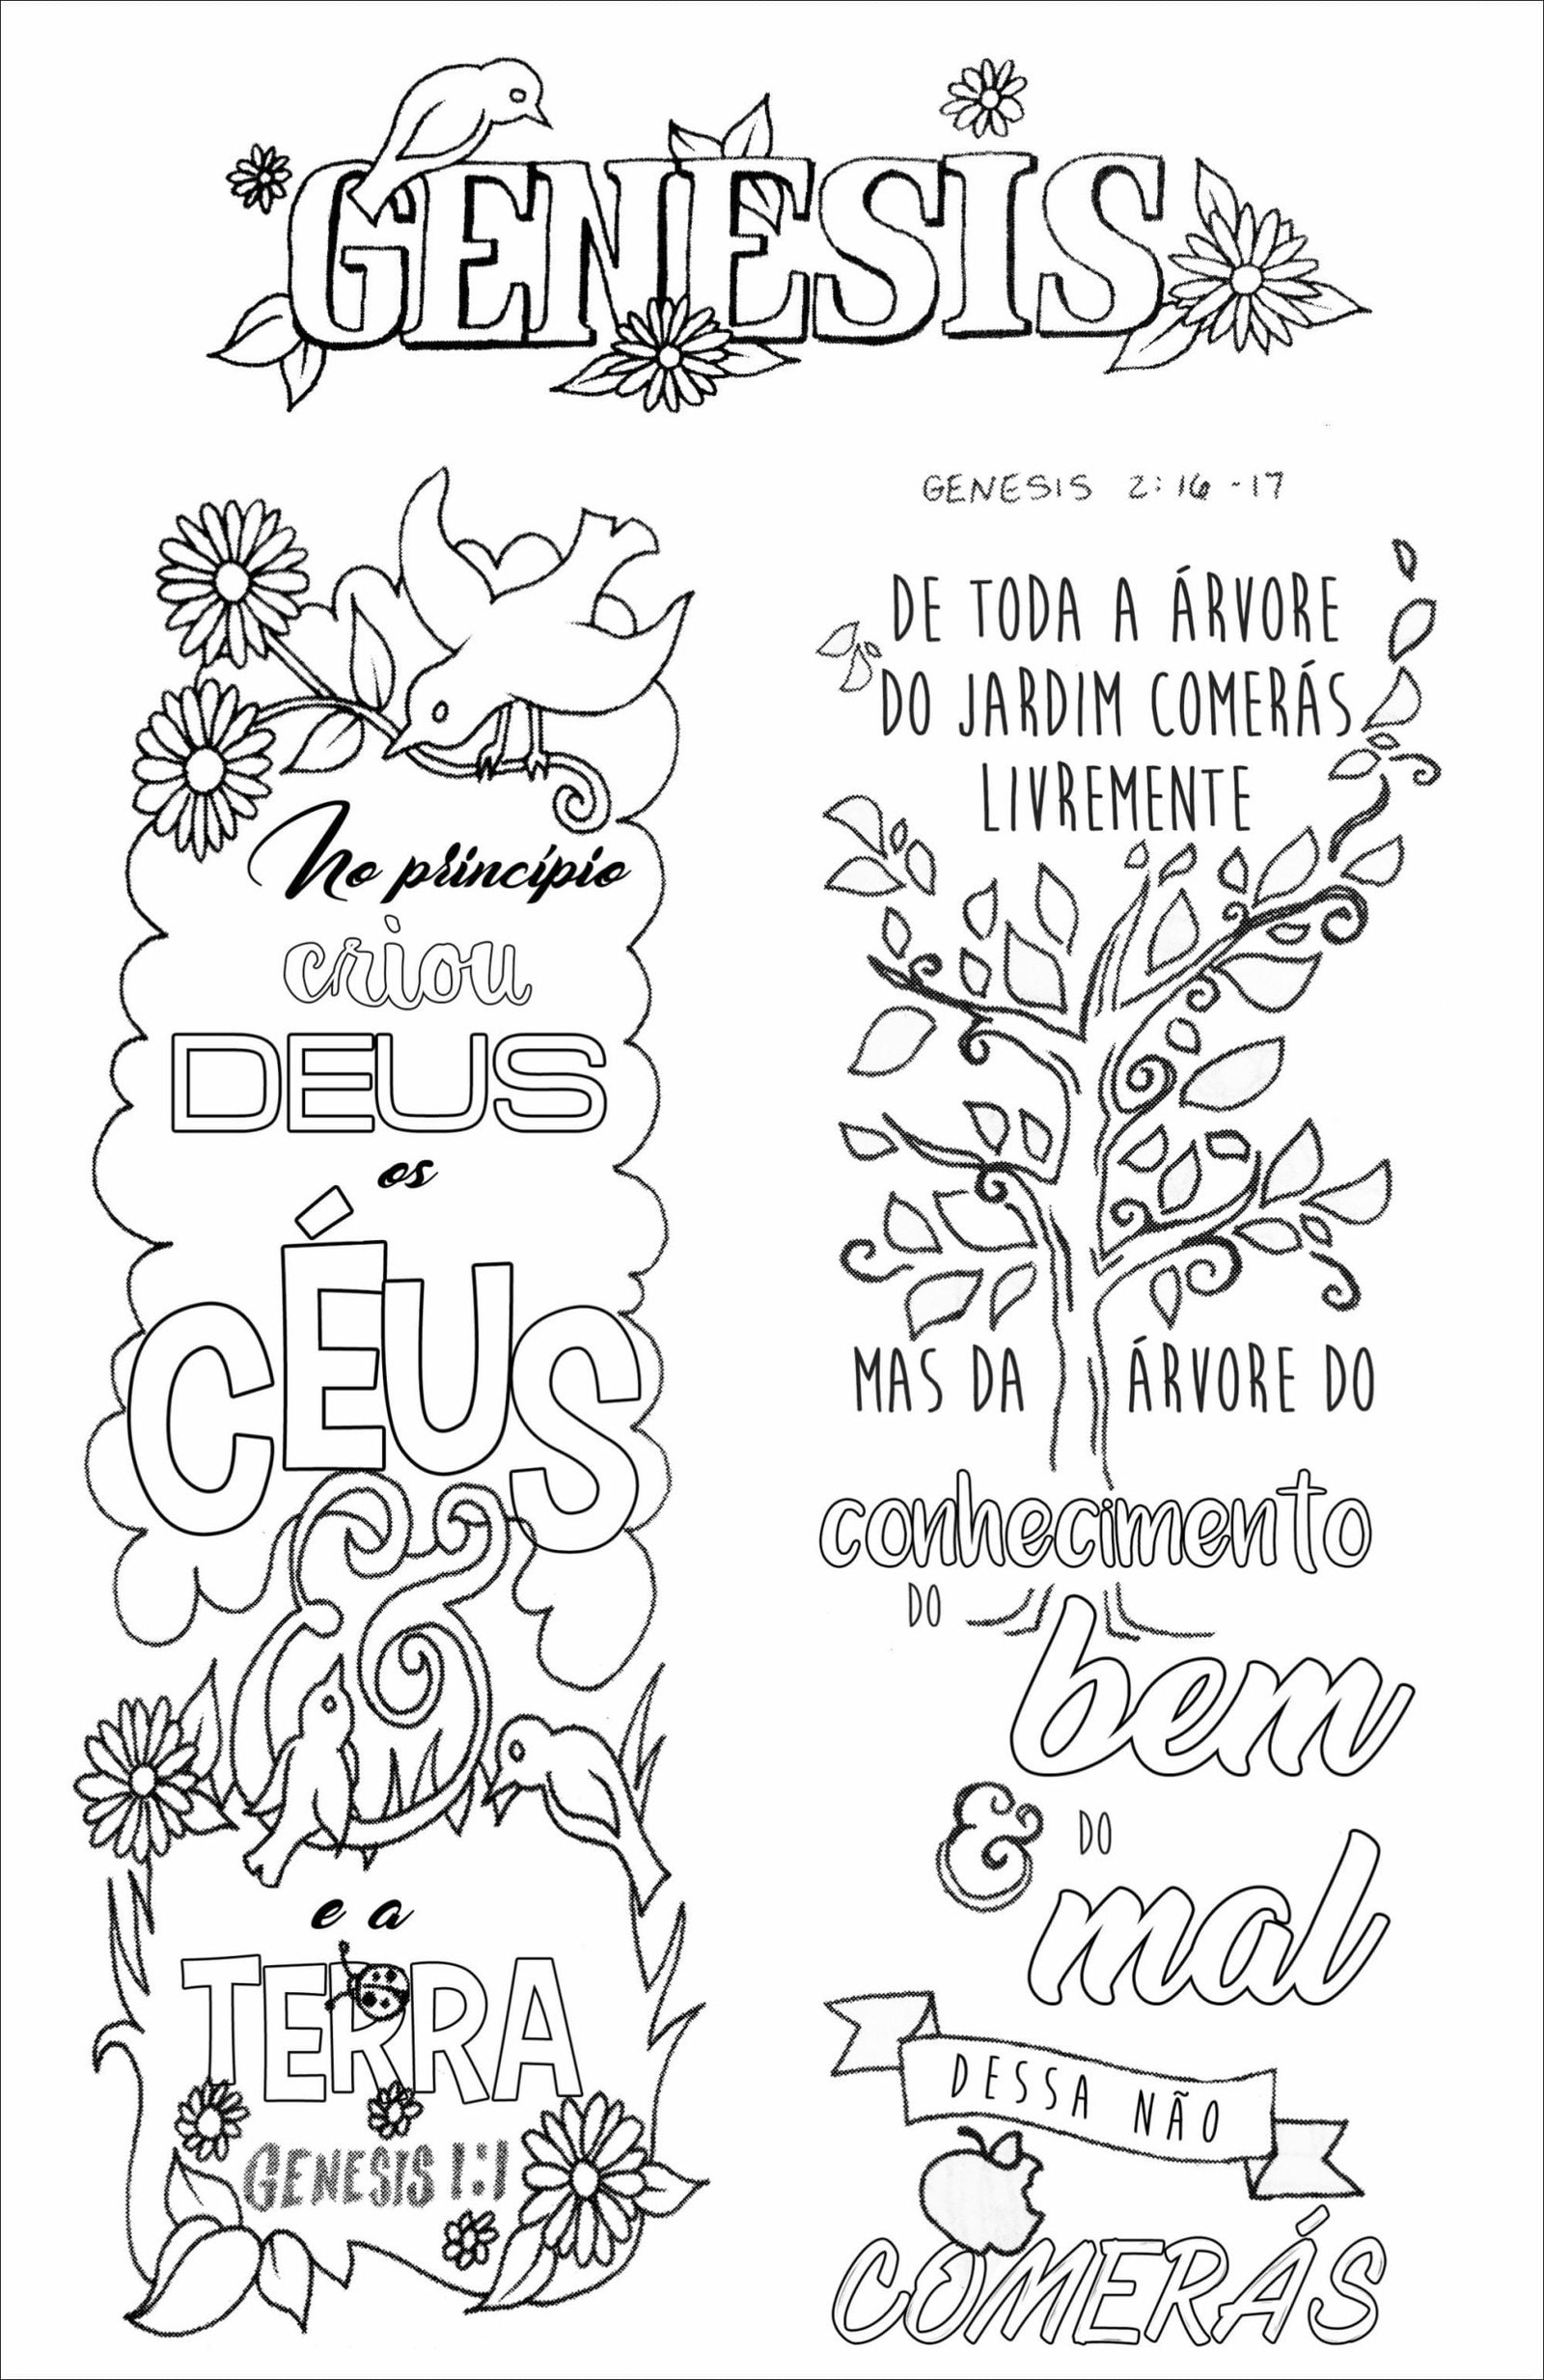 GENESIS
No princípio
criou
DEUS
os
CÉUS
e a
TERRA
GENESIS 1:1
GENESIS 2:16-17
DE TODA A ÁRVORE
DO JARDIM COMERÁS
LIVREMENTE
MAS DA ÁRVORE DO
conhecimento
DO
bem
& DO
mal
DESSA NÃO
COMERÁS